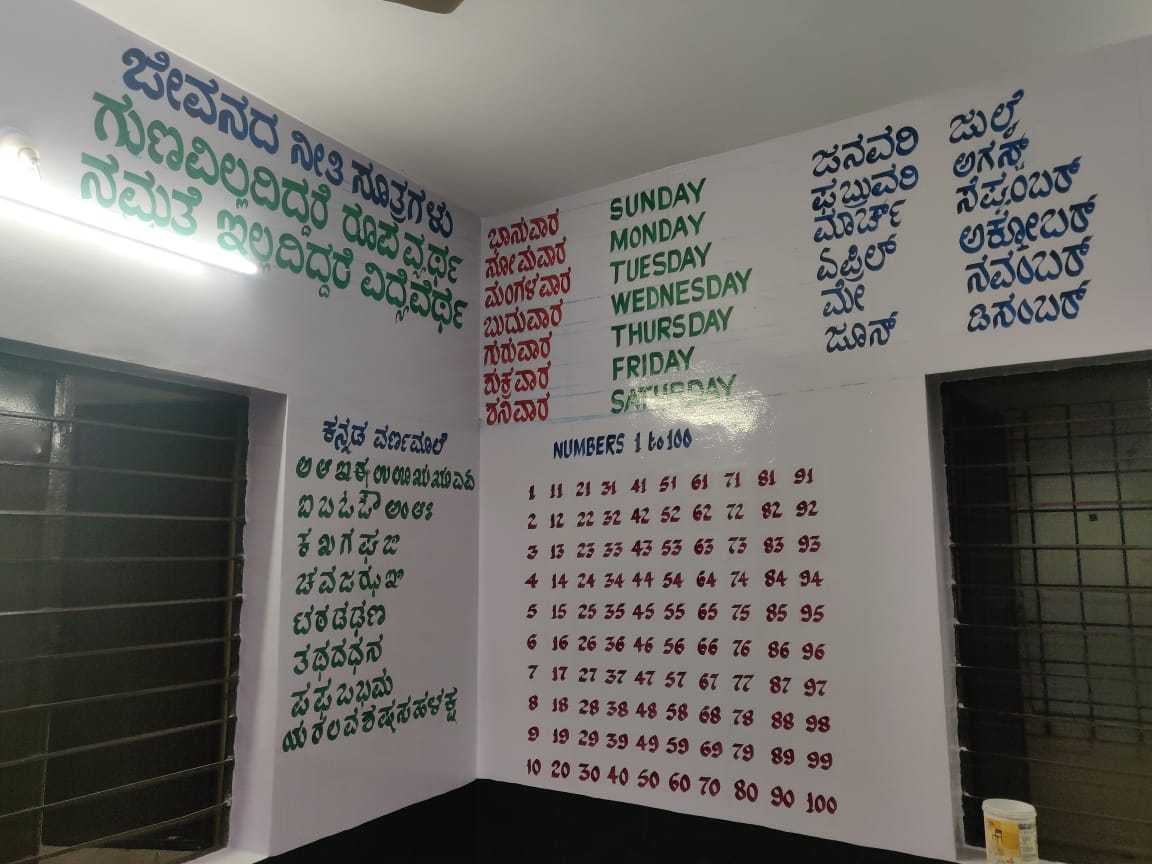 ಜೀವನದ ನೀತಿ ಸೂತ್ರಗಳು
ಗುಣವಿಲ್ಲದಿದ್ದರೆ ರೂಪ ವ್ಯರ್ಥ
ನಮ್ರತೆ ಇಲ್ಲದಿದ್ದರೆ ವಿದ್ಯೆವೆರ್ಥ
ಕನ್ನಡ ವರ್ಣಮಾಲೆ
ಅ ಆ ಇ ಈ ಉ ಊ ಋ ೠ ಎ ಏ
ಐ ಒ ಓ ಔ ಅಂ ಅಃ
ಕ ಖ ಗ ಘ ಙ
ಚ ಛ ಜ ಝ ಞ
ಟ ಠ ಡ ಢ ಣ
ತ ಥ ದ ಧ ನ
ಪ ಫ ಬ ಭ ಮ
ಯ ರ ಲ ವ ಶ ಷ ಸ ಹ ಳ ಕ್ಷ
ಭಾನುವಾರ SUNDAY
ಸೋಮವಾರ MONDAY
ಮಂಗಳವಾರ TUESDAY
ಬುದುವಾರ WEDNESDAY
ಗುರುವಾರ THURSDAY
ಶುಕ್ರವಾರ FRIDAY
ಶನಿವಾರ SATURDAY
ಜನವರಿ ಜುಲೈ
ಫೆಬ್ರುವರಿ ಅಗಸ್ಟ್
ಮಾರ್ಚ್ ಸೆಪ್ಟಂಬರ್
ಏಪ್ರಿಲ್ ಅಕ್ಟೋಬರ್
ಮೇ ನವಂಬರ್
ಜೂನ್ ಡಿಸಂಬರ್
NUMBERS 1 to 100
1 11 21 31 41 51 61 71 81 91
2 12 22 32 42 52 62 72 82 92
3 13 23 33 43 53 63 73 83 93
4 14 24 34 44 54 64 74 84 94
5 15 25 35 45 55 65 75 85 95
6 16 26 36 46 56 66 76 86 96
7 17 27 37 47 57 67 77 87 97
8 18 28 38 48 58 68 78 88 98
9 19 29 39 49 59 69 79 89 99
10 20 30 40 50 60 70 80 90 100